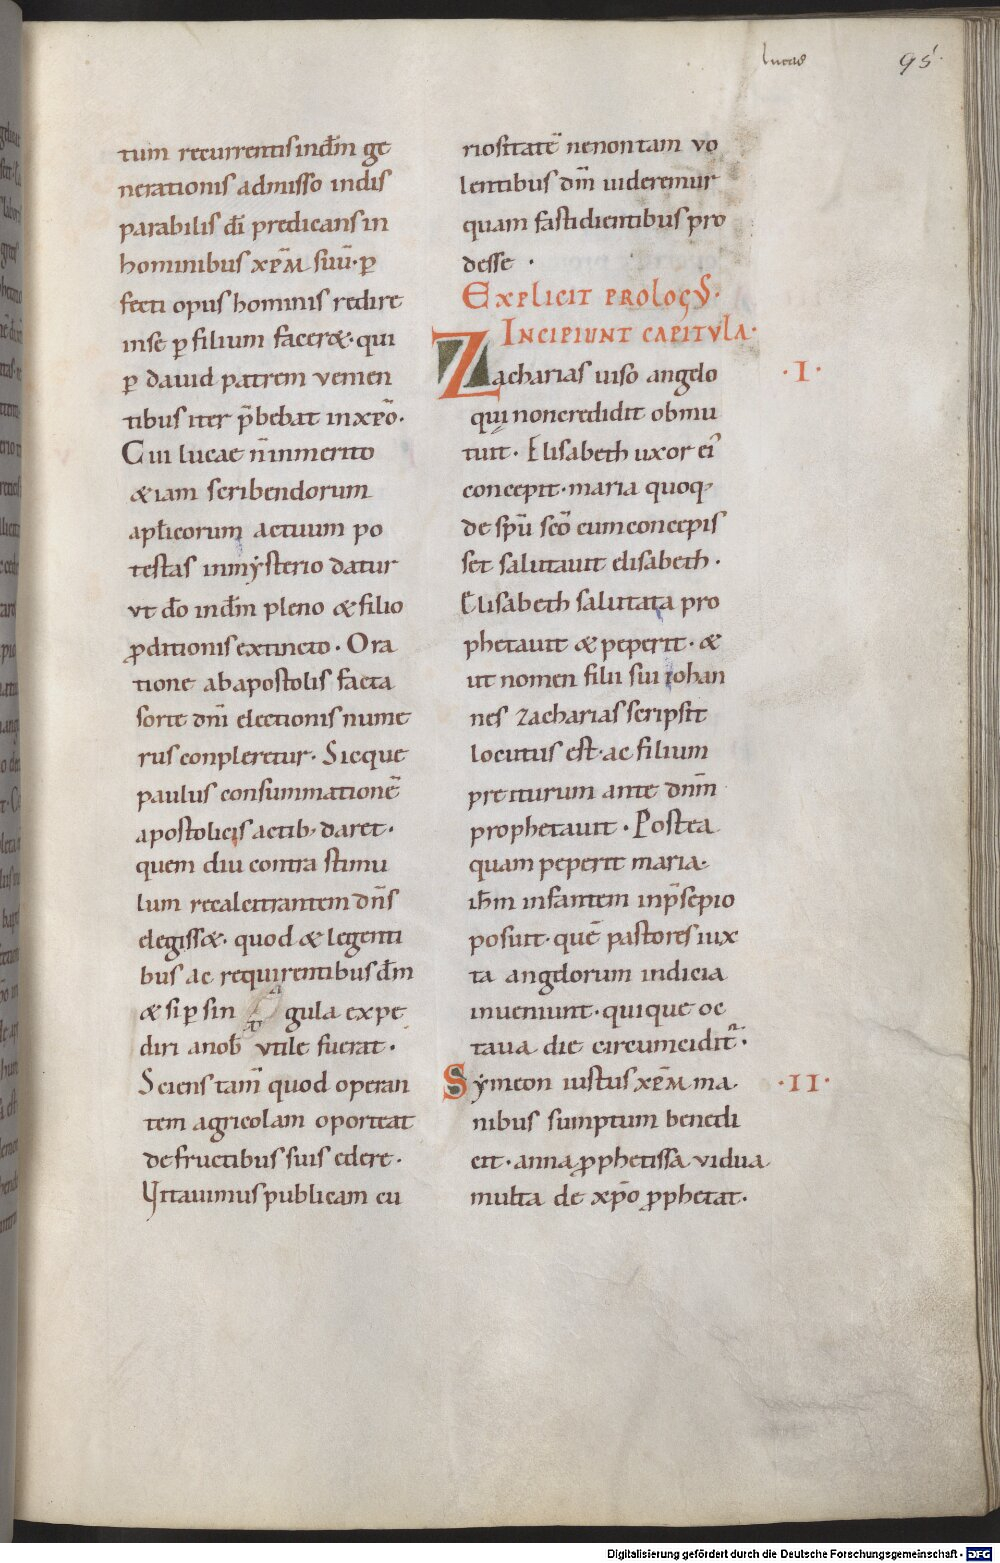 lucas
95
tum recurrentis in dm̄ ge
nerationis admisso indis
parabilis dī predicans in
hominibus xp̄m suū· ꝑ
fecti opus hominis redire
in se ꝑ filium facer&· qui
ꝑ dauid patrem venien
tibus iter p̄bebat in xp̄o·
Cui lucae n̄ inmerito
&iam scribendorum
apl̄icorum actuum po
testas in mẏsterio datur
vt dō in dm̄ pleno & filio
ꝓditionis extincto· Ora
tione ab apostolis facta
sorte dn̄i electionis nume
rus conpleretur· Sicque
paulus consummationē
apostolicis actib; daret·
quem diu contra stimu
lum recalcitrantem dn̄s
elegiss&· quod & legenti
bus ac requirentibus dm̄
& si ꝑ sin gula expe
diri a nob̄ vtile fuerat·
Sciens tam̄ quod operan
tem agricolam oporteat
de fructibus suis edere·
Vitauimus publicam cu
riositatē ne non tam vo
lentibus dm̄ uideremur
quam fastidientibus pro
desse ·
Explicit prologus·
Incipiunt capitula·
Zacharias uiso angelo ·I·
qui non credidit obmu
tuit· Elisabeth uxor ei'
concepit· maria quoq;
de spū scō cum concepis
set salutauit elisabeth·
Elisabeth salutata pro
phetauit & peperit· &
ut nomen filii sui iohan
nes zacharias scripsit
locutus est· ac filium
preiturum ante dnm̄
prophetauit· Postea
quam peperit maria·
ih̄m infantem in p̄sepio
posuit· quē pastores iux
ta angelorum indicia
inueniunt· quique oc
taua die circumciditr·
Symeon iustus xp̄m ma· ·II·
nibus sumptum benedi
cit· anna ꝓphetissa vidua
multa de xp̄o ꝓphetat·
Digitalisierung gefördert durch die Deutsche Forschungsgemeinschaft - DFG